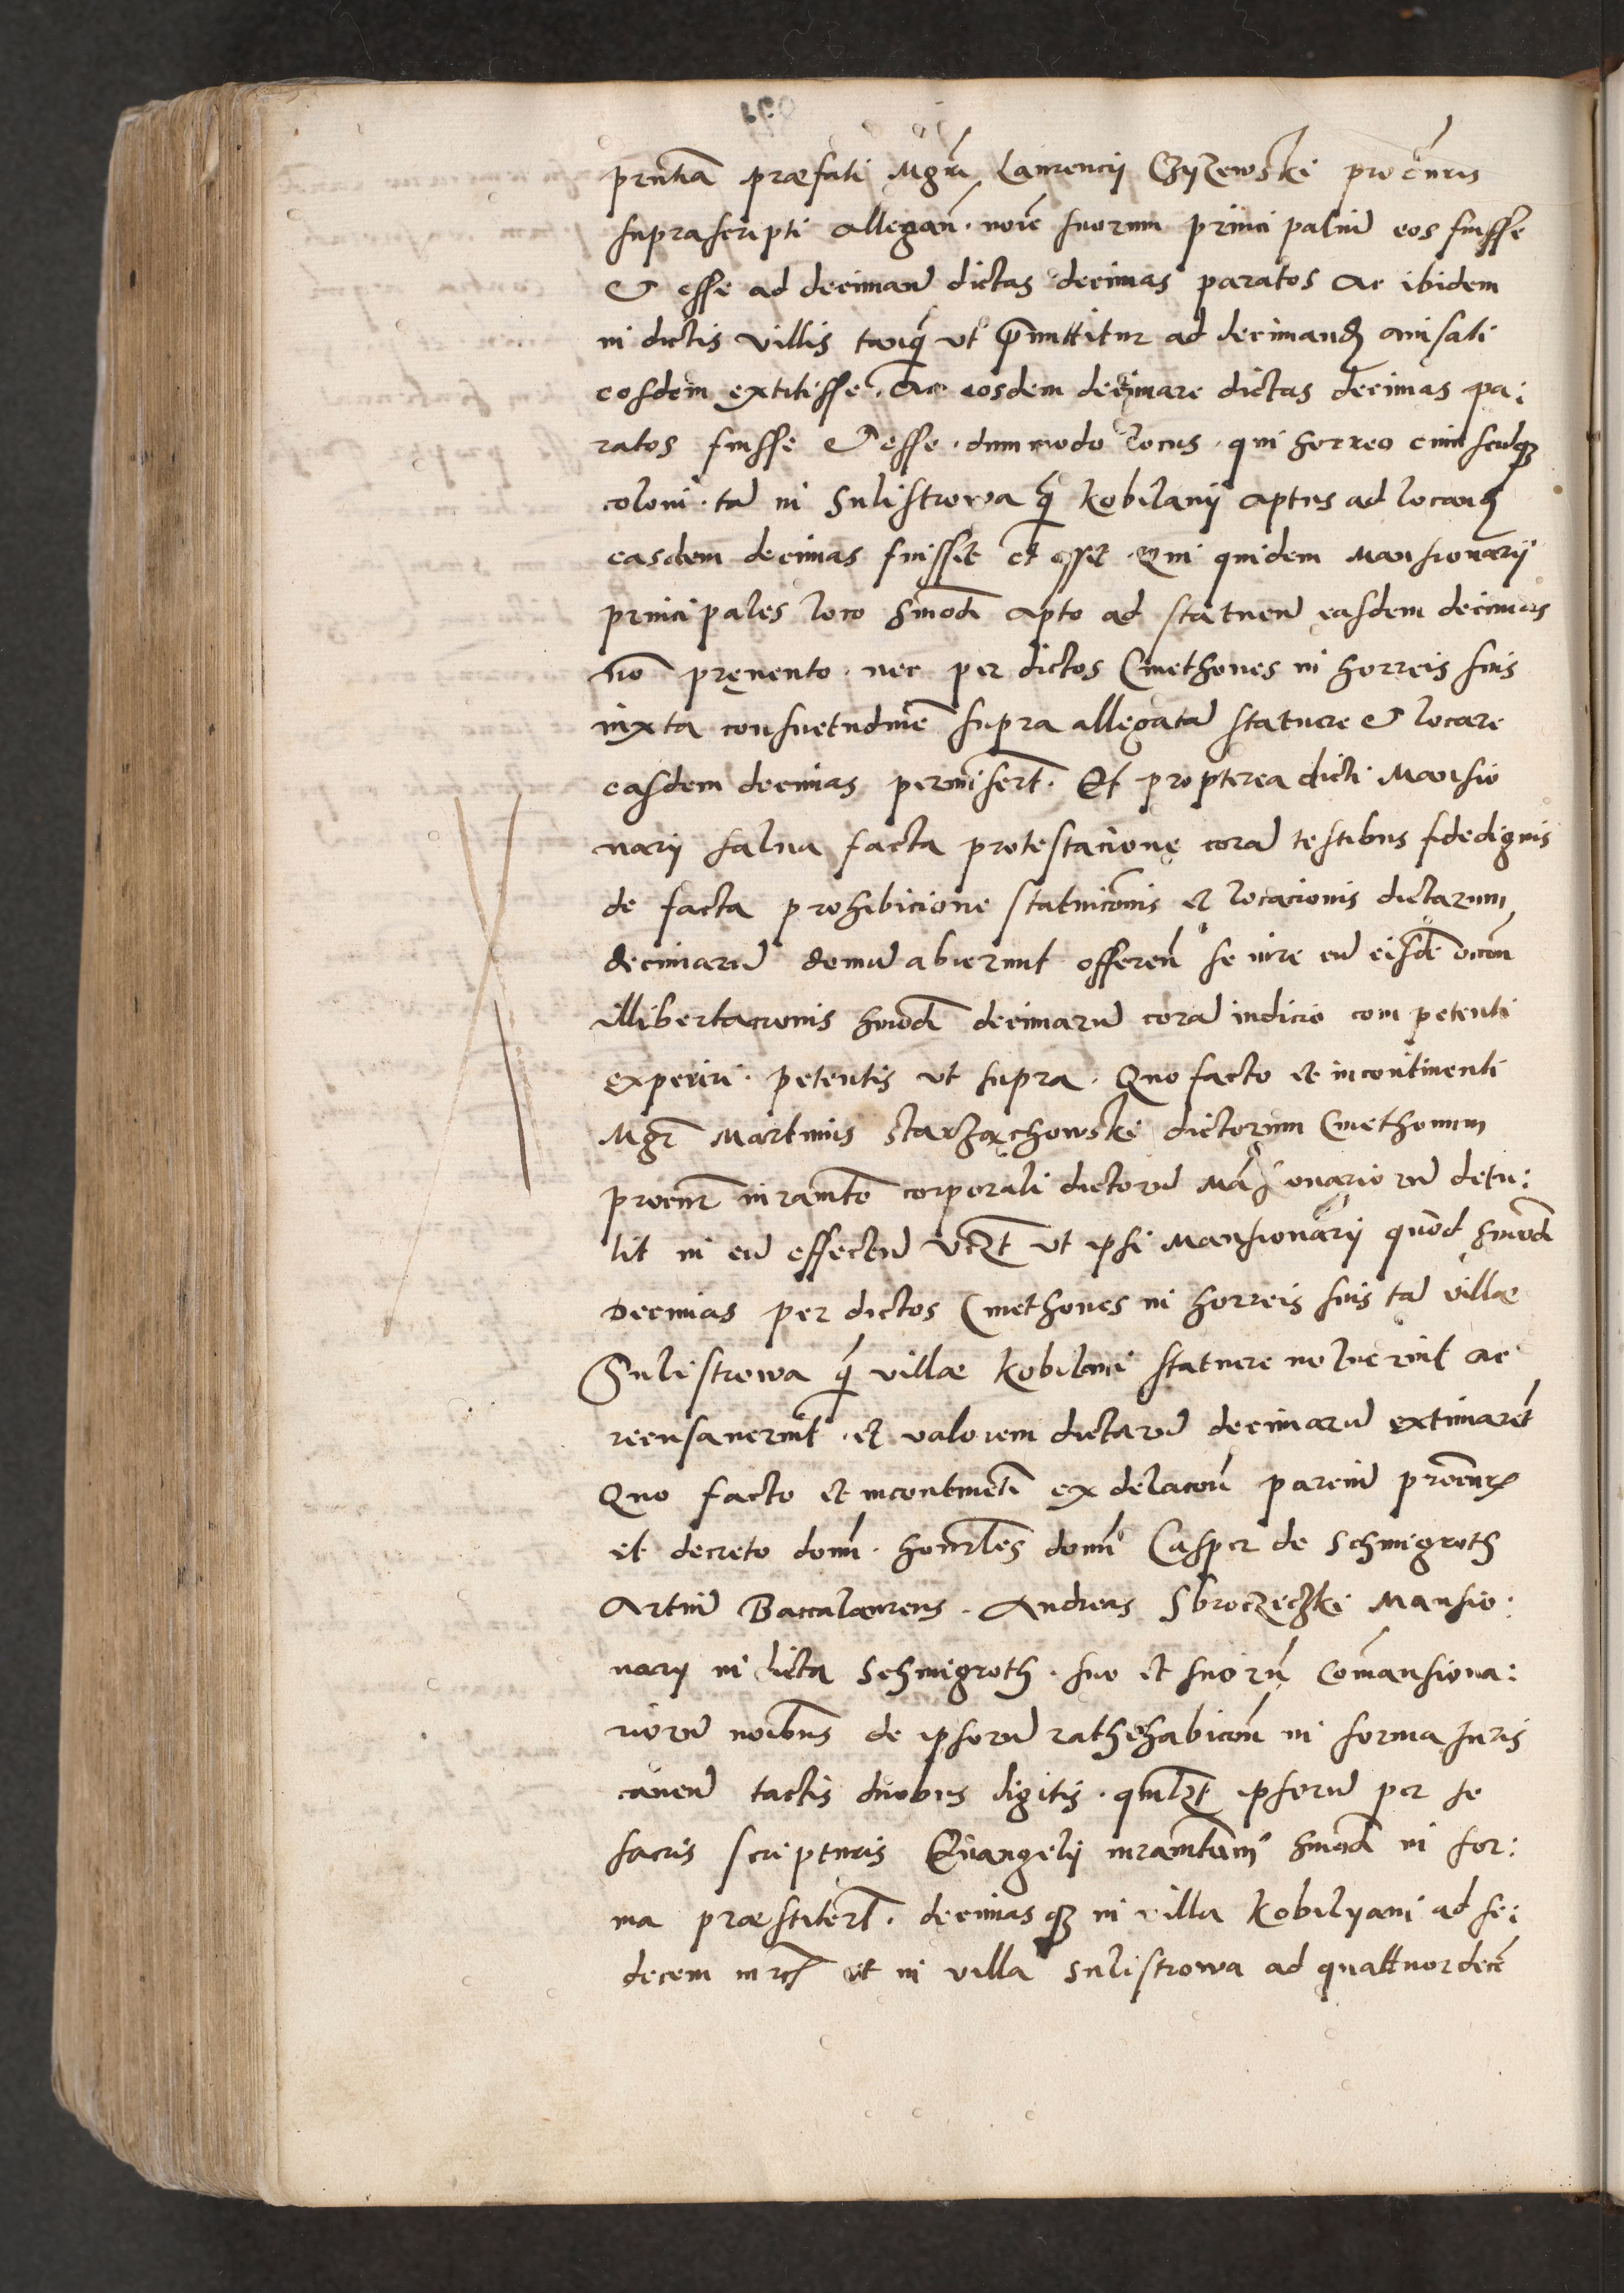 prntiã præfati Mgrĩ Laurencij Czyzewski procuris
suprascripti allegan̄. noĩe suorum principaliũ eos fuisse
& esse ad deciman̄ dictas decimas paratos ac ibidem
in dictis villis tanq̃ ut p̄mittitur ad decimand̄ auisati
eosdem extitisse. Ac eosdem decimare dictas decimas pa:
ratos fuisse & esse. dummodo locus. qui horreo cuiuscuq̃
coloni. tã in Sulistrowa q̃ Kobilanij aptus ad locand̄
easdem decimas fuisset et esset. Qui quidem Mansionarij
principales loco hmõdi apto ad statuen̄ easdem decimas
nõ pręuento. nec per dictos Cmethones in horreis suis
iuxta consuetudinẽ supra allegatã statuere & locare
easdem decimas permiserũt. Et propterea dicti Mansio
narij salua facta protestacione corã testibus fidedignis
de facta prohibicione statuicõnis et locacionis dictarum
decimarũ domũ abierunt offeren̄ se iure cũ eisdẽ occõn
illibertacionis hmõdi decimarũ corã iudicio competenti
experiri. petentis ut supra. Quo facto et incontinenti
Mgr̄ Martinus Starząchowski dictorum Cmethonum
procur̄ iuramẽto corporali dictorũ Mãsionariorũ detu:
lit in eũ effectũ vczt ut ipsi Mansionarij quod hmõdi
Decimas per dictos Cmethones in horreis suis tã villæ
Sulistrowa q̃ villæ Kobilani statuere noluerint ac
recusauerint. et valorem dictarũ decimarũ extimarẽt
Quo facto et incontinẽti ex delacõn parciũ procur̄
et decreto domĩ. honorłes domĩ Casper de Schmigroth
Artiũ Baccalaureus. Andreas Sbroczeczki Mansio:
narij in dicta Schmigroth. suo et suorũ Cõmansiona:
riorũ noĩbus de ipsorũ rathehabicõn in forma Juris
cauen̄ tactis duobus digitis. quilzt ipsorũ per se
sacris scripturis Euangelij iuramẽtum hmõdi in for:
ma præstiterũt. decimasq̃ in villa Kobilyani ad se:
decem mrc̄ et in villa Sulistrowa ad quattuordecẽ